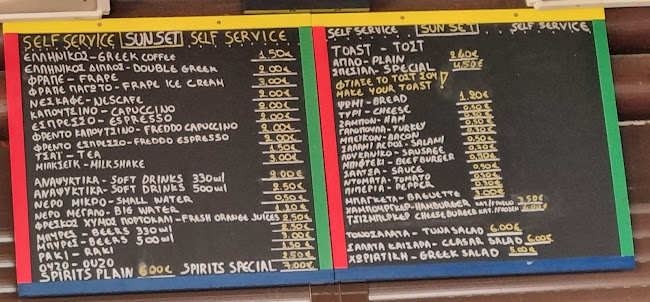 SELF SERVICE SUNSET SELF SERVICE
ΕΛΛΗΝΙΚΟΣ - GREEK COFFEE 1.50€
ΕΛΛΗΝΙΚΟΣ ΔΙΠΛΟΣ - DOUBLE GREEK 2.00€
ΦΡΑΠΕ - FRAPE 2.00€
ΦΡΑΠΕ ΠΑΓΩΤΟ - FRAPE ICE CREAM 3.00€
ΝΕΣΚΑΦΕ - NESCAFE 2.00€
ΚΑΠΟΥΤΣΙΝΟ - CAPUCCINO 2.00€
ΕΣΠΡΕΣΣΟ - ESPRESSO 2.00€
ΦΡΕΝΤΟ ΚΑΠΟΥΤΣΙΝΟ - FREDDO CAPUCCINO 2.00€
ΦΡΕΝΤΟ ΕΣΠΡΕΣΣΟ - FREDDO ESPRESSO 2.00€
ΤΣΑΙ - TEA 1.50€
ΜΙΛΚΣΕΙΚ - MILKSHAKE 3.00€
ΑΝΑΨΥΚΤΙΚΑ - SOFT DRINKS 330ml 2.00€
ΑΝΑΨΥΚΤΙΚΑ - SOFT DRINKS 500ml 2.50€
ΝΕΡΟ ΜΙΚΡΟ - SMALL WATER 0.50€
ΝΕΡΟ ΜΕΓΑΛΟ - BIG WATER
ΦΡΕΣΚΟΣ ΧΥΜΟΣ ΠΟΡΤΟΚΑΛΙ - FRESH ORANGE JUICES 2.50€
ΜΠΥΡΕΣ - BEERS 330ml 2.50€
ΜΠΥΡΕΣ - BEERS 500ml 3.00€
ΡΑΚΙ - RAKI
ΟΥΖΟ - OUZO 2.50€
SPIRITS PLAIN 6.00€ SPIRITS SPECIAL 7.00€
SELF SERVICE SUNSET SELF SERVICE
TOAST - ΤΟΣΤ
ΑΠΛΟ - PLAIN 2.40€
ΣΠΕΣΙΑΛ - SPECIAL 4.50€
ΦΤΙΑΞΕ ΤΟ ΤΟΣΤ ΣΟΥ!
MAKE YOUR TOAST
ΨΩΜΙ - BREAD 1.20€
ΤΥΡΙ - CHEESE 0.50€
ΖΑΜΠΟΝ - HAM 0.50€
ΓΑΛΟΠΟΥΛΑ - TURKEY 0.50€
ΜΠΕΙΚΟΝ - BACON 0.50€
ΣΑΛΑΜΙ ΑΕΡΟΣ - SALAMI 0.50€
ΛΟΥΚΑΝΙΚΟ - SAUSAGE
ΜΠΙΦΤΕΚΙ - BEEFBURGER
ΣΑΛΤΣΑ - SAUCE 0.50€
ΝΤΟΜΑΤΑ - TOMATO 0.30€
ΠΙΠΕΡΙΑ - PEPPER 0.30€
ΜΠΑΓΚΕΤΑ - BAGUETTE 3.00€
ΧΑΜΠΟΥΡΓΚΕΡ - HAMBURGER ΚΑΤ./FROZEN 3.50€
ΤΣΙΖΜΠΕΡΓΚΕΡ CHEESEBURGER ΚΑΤ./FROZEN
ΤΟΝΟΣΑΛΑΤΑ - TUNA SALAD 6.00€
ΣΑΛΑΤΑ ΚΑΙΣΑΡΑ - CEASAR SALAD 6.00€
ΧΩΡΙΑΤΙΚΗ - GREEK SALAD 5.00€